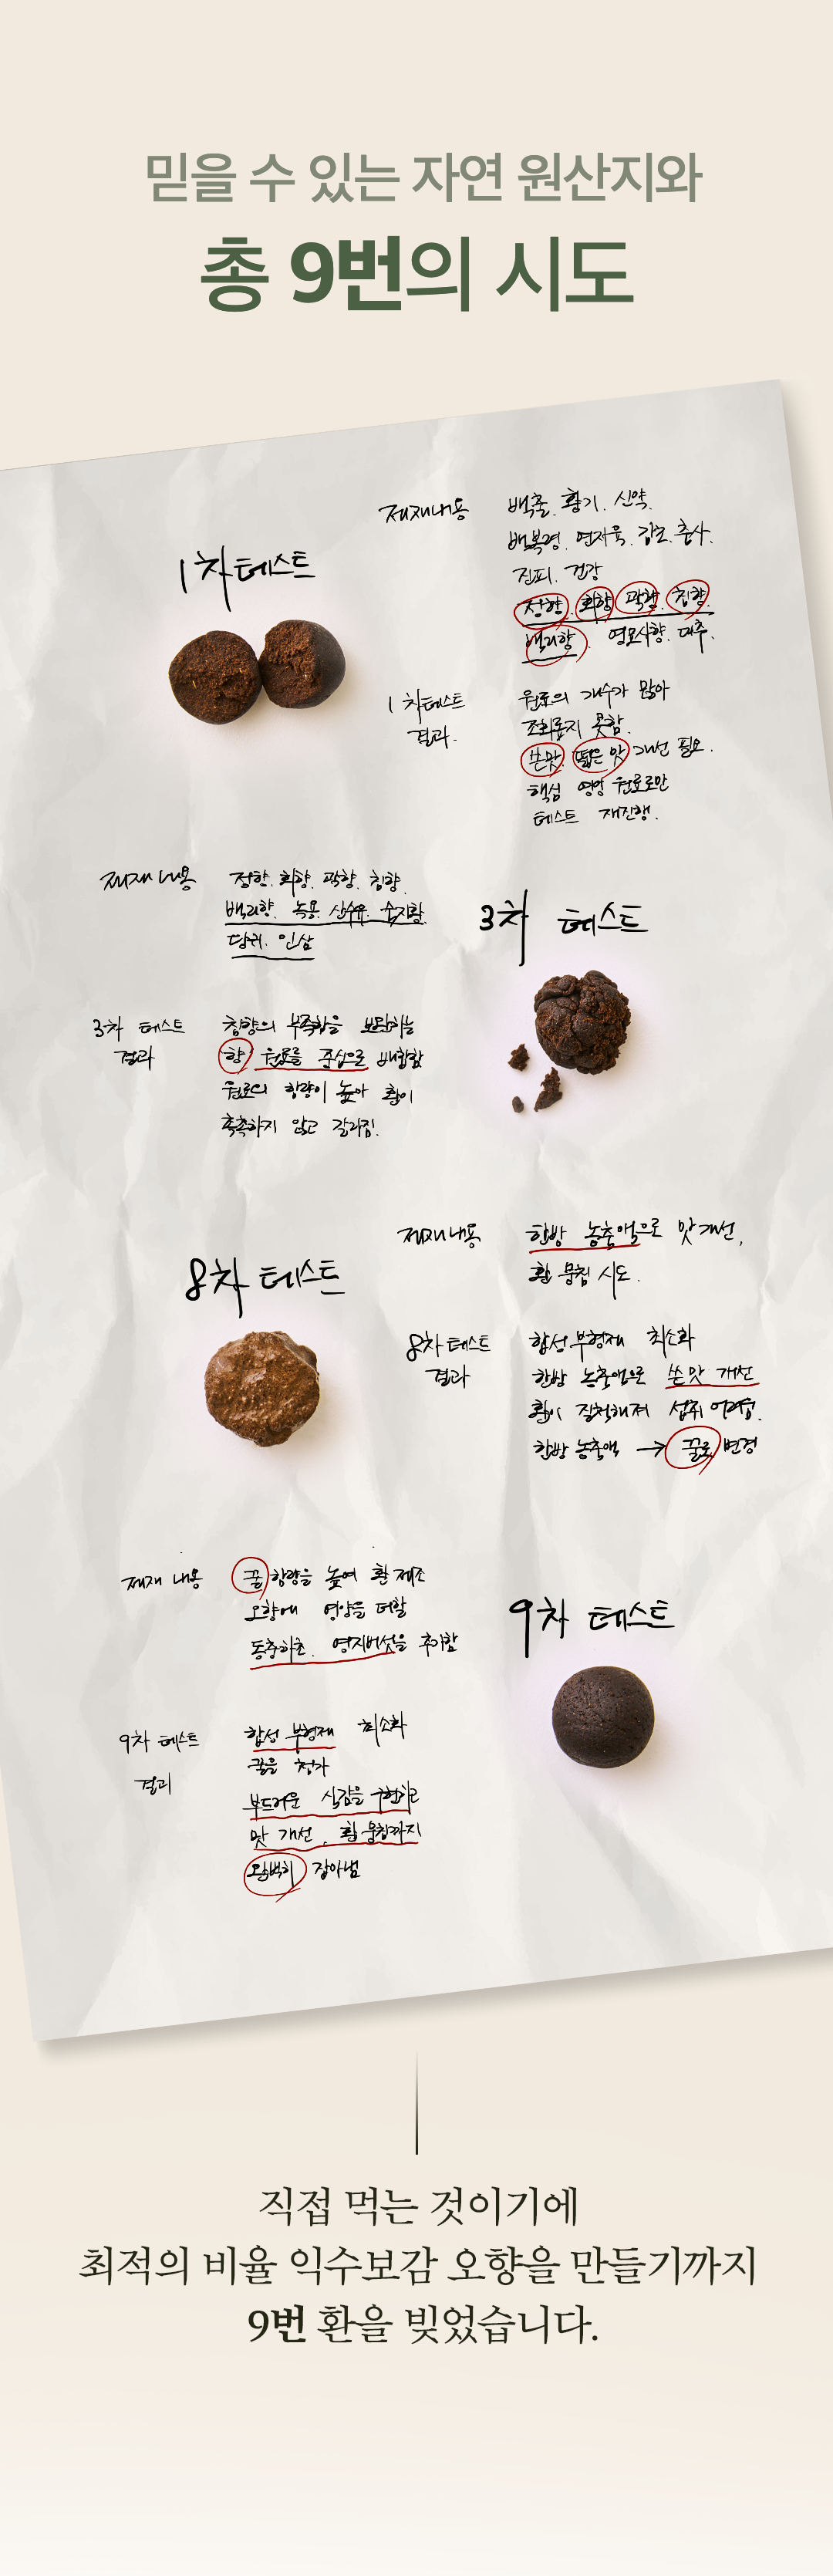 믿을 수 있는 자연 원산지와
총 9번의 시도
1차 테스트
제재내용
백출. 황기. 신약.
백복령. 연자육. 감초. 축사.
진피. 건강
정향. 회향. 곽향. 침향.
백리향. 영묘사향. 대추.
1차테스트
결과.
원료의 개수가 많아
조화롭지 못함.
쓴맛. 떫은 맛 개선 필요.
핵심 영양 원료로만
테스트 재진행.
제재내용
정향. 회향. 곽향. 침향.
백리향. 녹용. 산수유. 숙지황.
당귀. 인삼
3차 테스트
3차 테스트
결과
침향의 부족함을 보탬하는
향 원료를 중심으로 배합함
원료의 함량이 높아 환이
촉촉하지 않고 갈라짐.
8차 테스트
제재내용
한방 농축액으로 맛개선,
환 뭉침 시도.
8차테스트
결과
합성부형제 최소화
한방 농축액으로 쓴맛 개선
환이 질척해져 섭취 어려움.
한방농축액 → 꿀로 변경
제재 내용
꿀 함량을 높여 환 제조
오향에 영양을 더할
동충하초. 영지버섯을 추가함
9차 테스트
9차 테스트
결과
합성 부형제 최소화
꿀을 첨가
부드러운 식감을 구현하고
맛 개선, 환 뭉침까지
완벽히 잡아냄
직접 먹는 것이기에
최적의 비율 익수보감 오향을 만들기까지
9번 환을 빚었습니다.